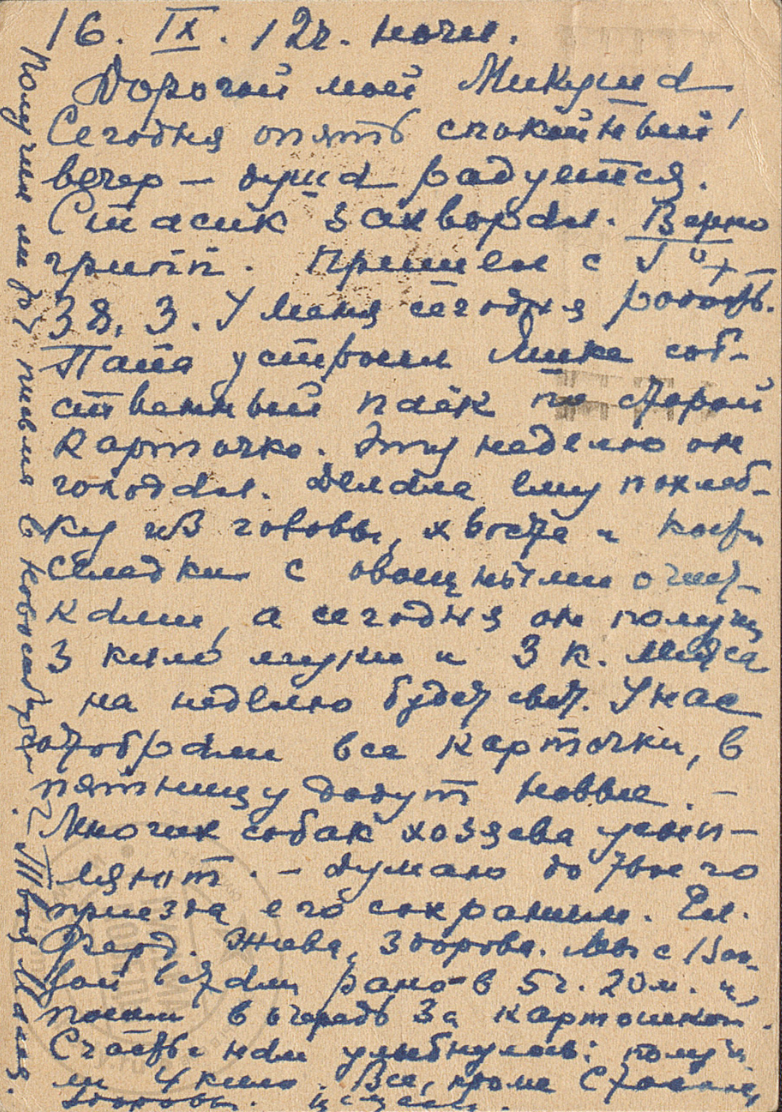 16. IX. 12 ч. ночи.
Дорогой мой Микуша
Сегодня опять спокойный
вечер — душа радуется.
Стасик захворал. Верно
грипп. Пришел с t°
38,3. У меня сегодня радость.
Папа устроил Мике соб-
ственный паёк по старой
карточке. Эту неделю он
голодал. Делала ему похлеб-
ку из головы, хвоста и
селедки с овощными очист-
ками, а сегодня он получил
3 кило муки и 3 к. мяса
на неделю будет сыт. У нас
отобрали все карточки, в
пятницу дадут новые. —
Многих собак хозяева усып-
ляют. — Думаю до твоего
приезда его сохраним. Ел.
Ферд. жива, здорова. Мы с
встали рано в 5 ч. 20 м. и
пошли в очередь за картошкой.
Счастье нам улыбнулось: получи
ли 4 кило. Все, кроме Стасика,
здоровы. Целуем.
Получил ли ты письма в Новосибирске? Твоя Маля.